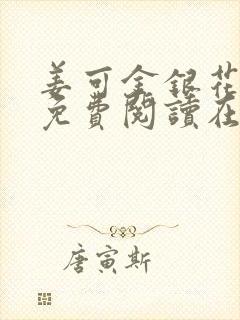 姜可金銀花
免費閱讀在
唐寅斯